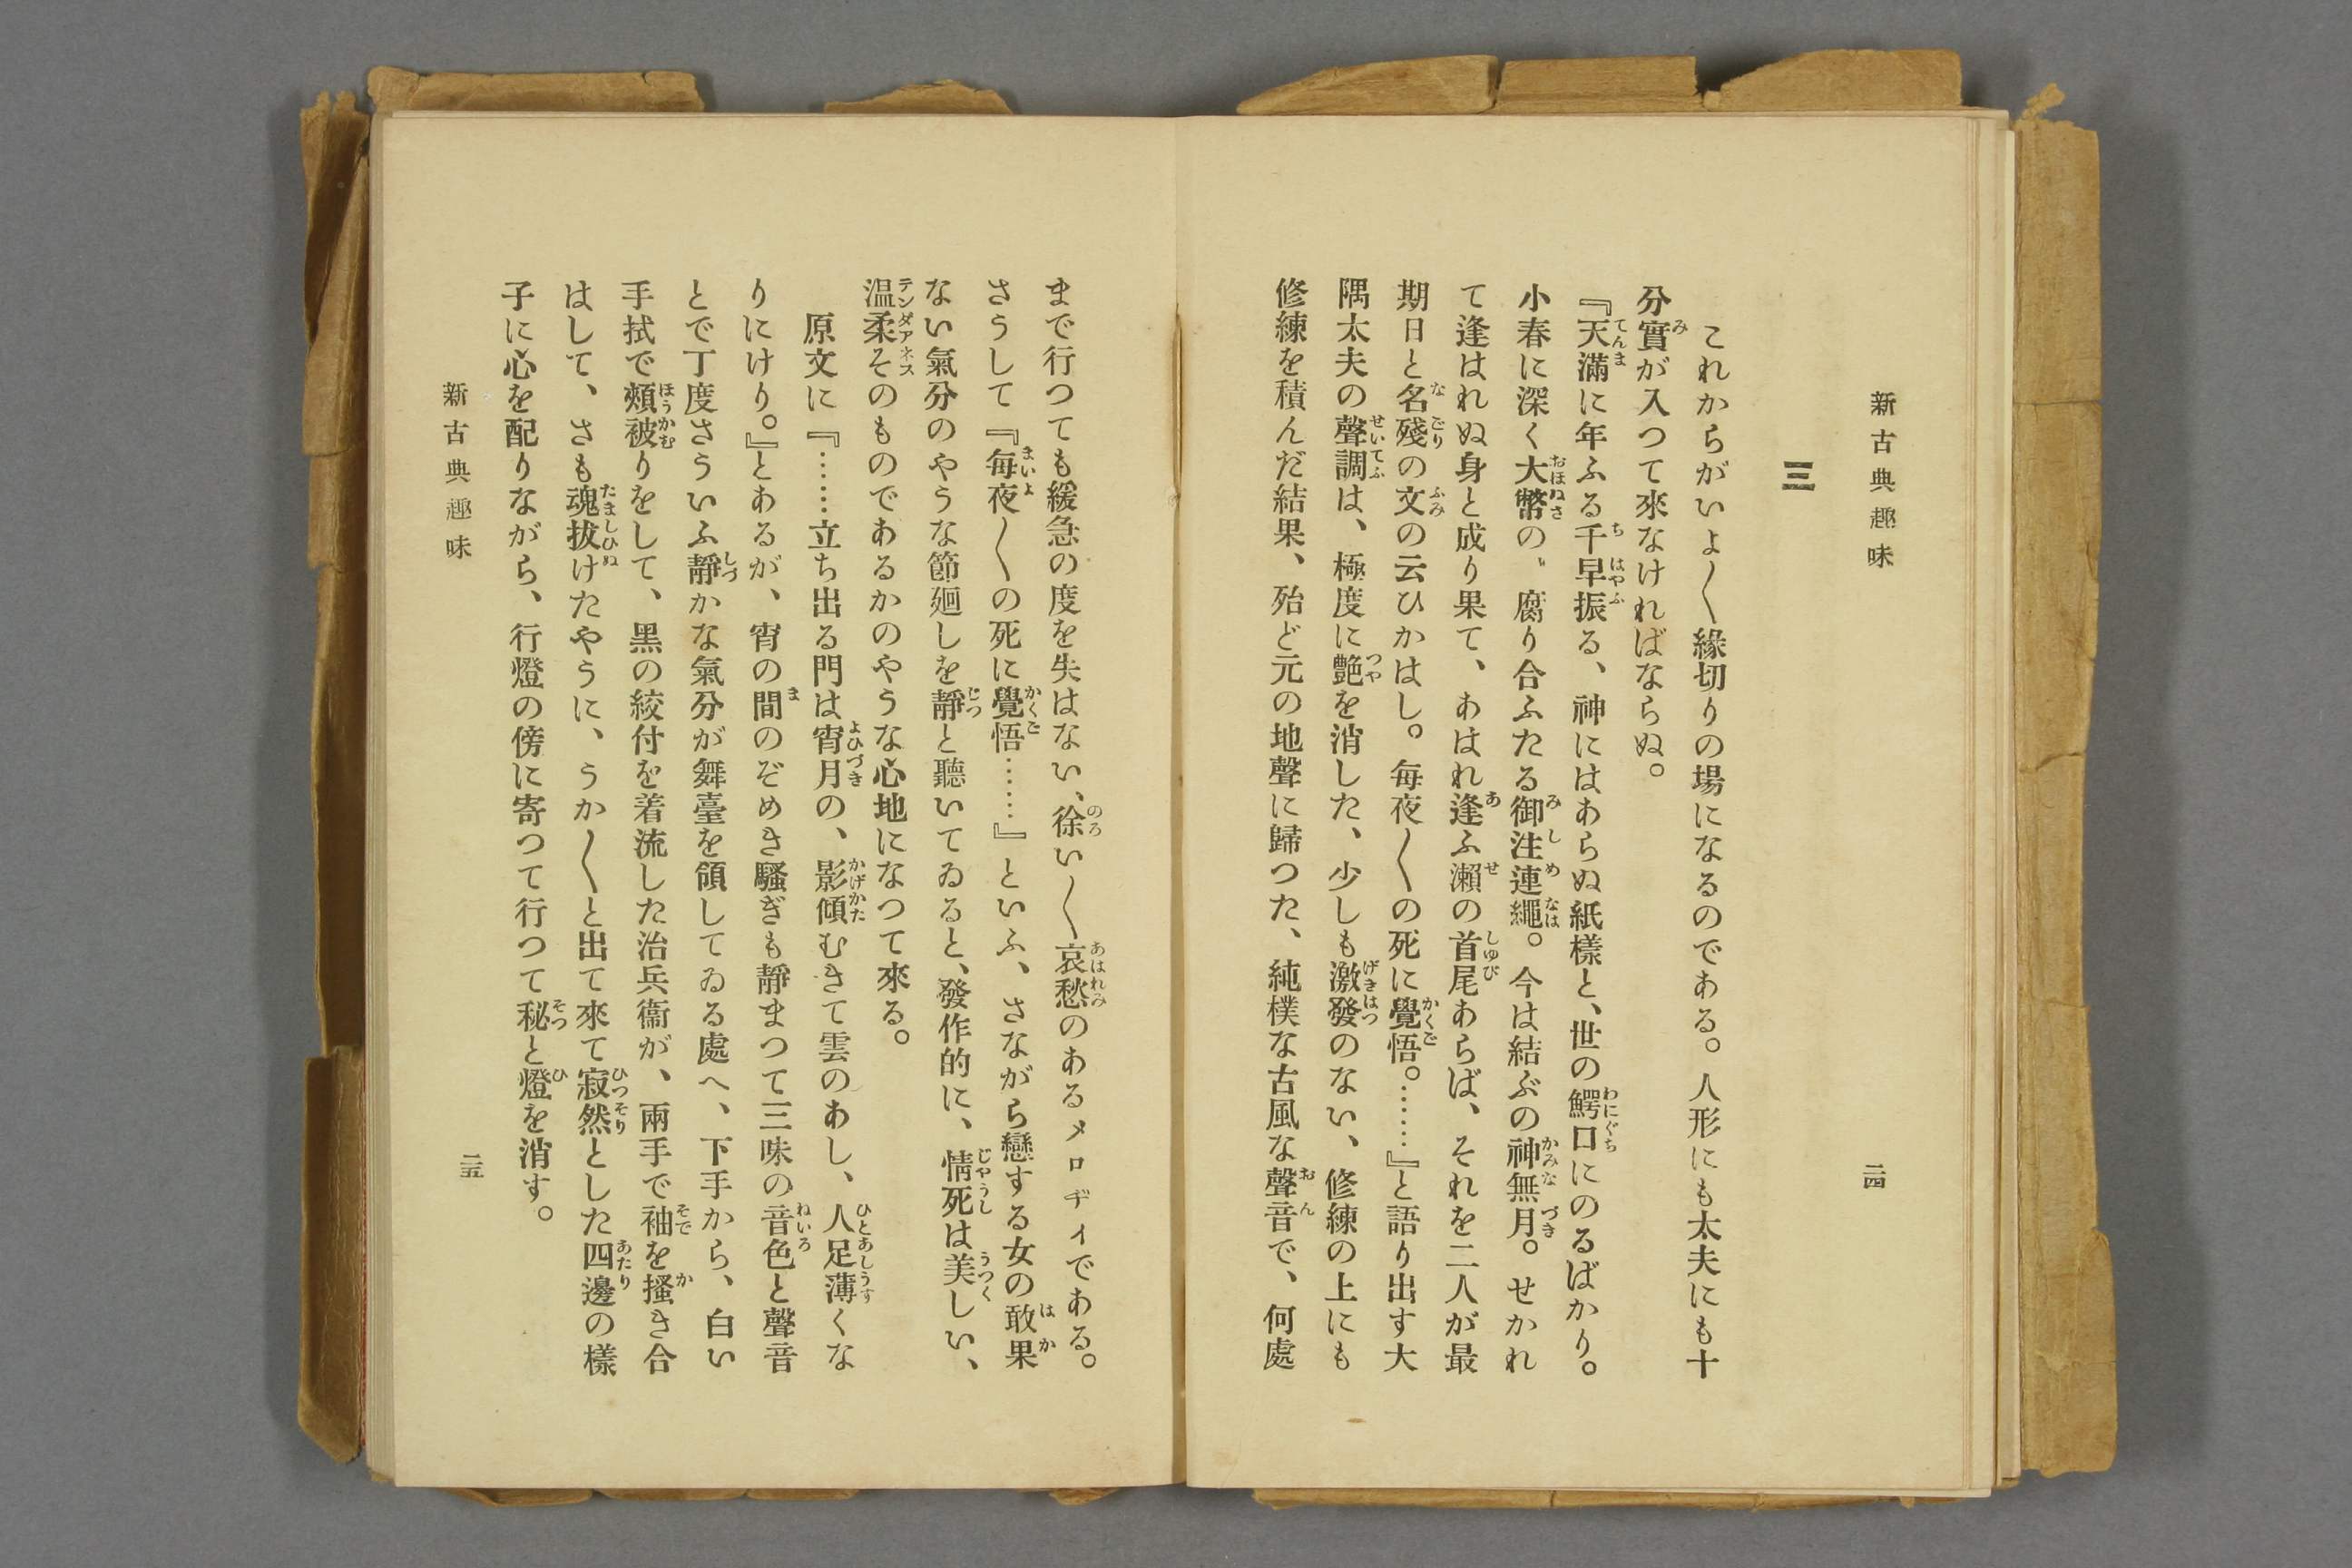 新古典趣味
二四
三
これからがいよ〱緣切りの場になるのである。人形にも太夫にも十
分實が入つて來なければならぬ。
『天滿に年ふる千早振る、神にはあらぬ紙樣と、世の鰐口にのるばかり。
小春に深く大幣の、腐り合ふたる御注連繩。今は結ぶの神無月。せかれ
て逢はれぬ身と成り果て、あはれ逢ふ瀨の首尾あらば、それを二人が最
期日と名殘の文の云ひかはし。每夜〱の死に覺悟。……』と語り出す大
隅太夫の聲調は、極度に艶を消した、少しも激發のない、修練の上にも
修練を積んだ結果、殆ど元の地聲に歸つた、純樸な古風な聲音で、何處
まで行つても緩急の度を失はない、徐い〱哀愁のあるメロヂイである。
さうして『每夜〱の死に覺悟……』といふ、さながら戀する女の敢果
ない氣分のやうな節廻しを靜と聽いてゐると、發作的に、情死は美しい、
温柔そのものであるかのやうな心地になつて來る。
原文に『……立ち出る門は宵月の、影傾むきて雲のあし、人足薄くな
りにけり。』とあるが、宵の間のぞめき騷ぎも靜まつて三味の音色と聲音
とで丁度さういふ靜かな氣分が舞臺を領してゐる處へ、下手から、白い
手拭で頰被りをして、黑の絞付を着流した治兵衞が、兩手で袖を搔き合
はして、さも魂拔けたやうに、うか〱と出て來て寂然とした四邊の樣
子に心を配りながら、行燈の傍に寄つて行つて秘と燈を消す。
新古典趣味
二五